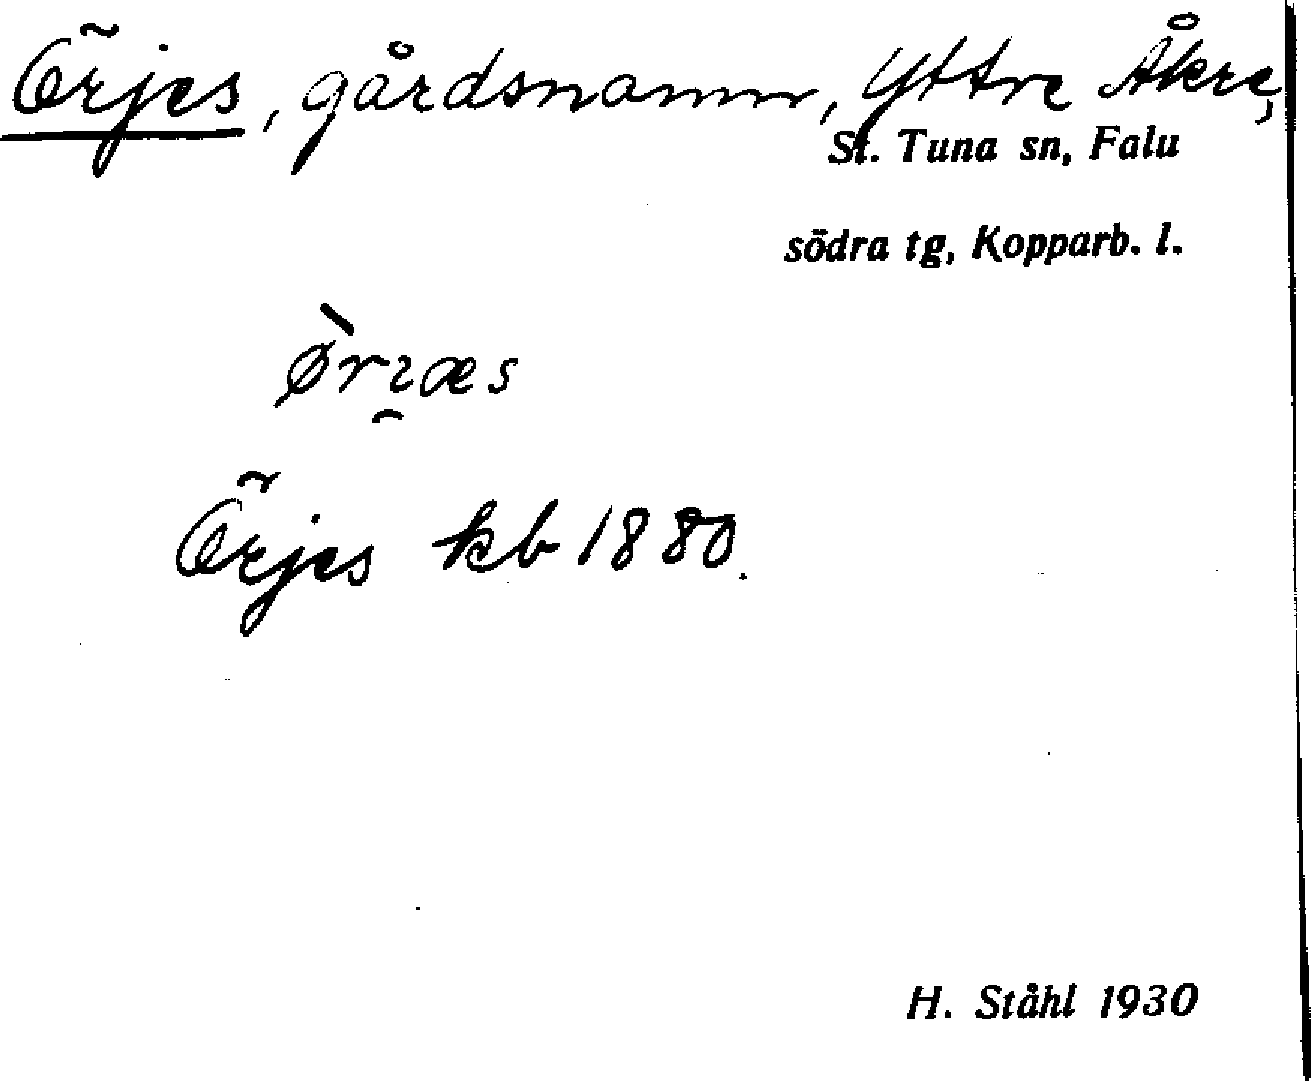 Örjes, gårdsnamn, Yttre Åkre,
St. Tuna sn, Falu
södra tg, Kopparb. l.
Örjes kb 1880.
H. Ståhl 1930